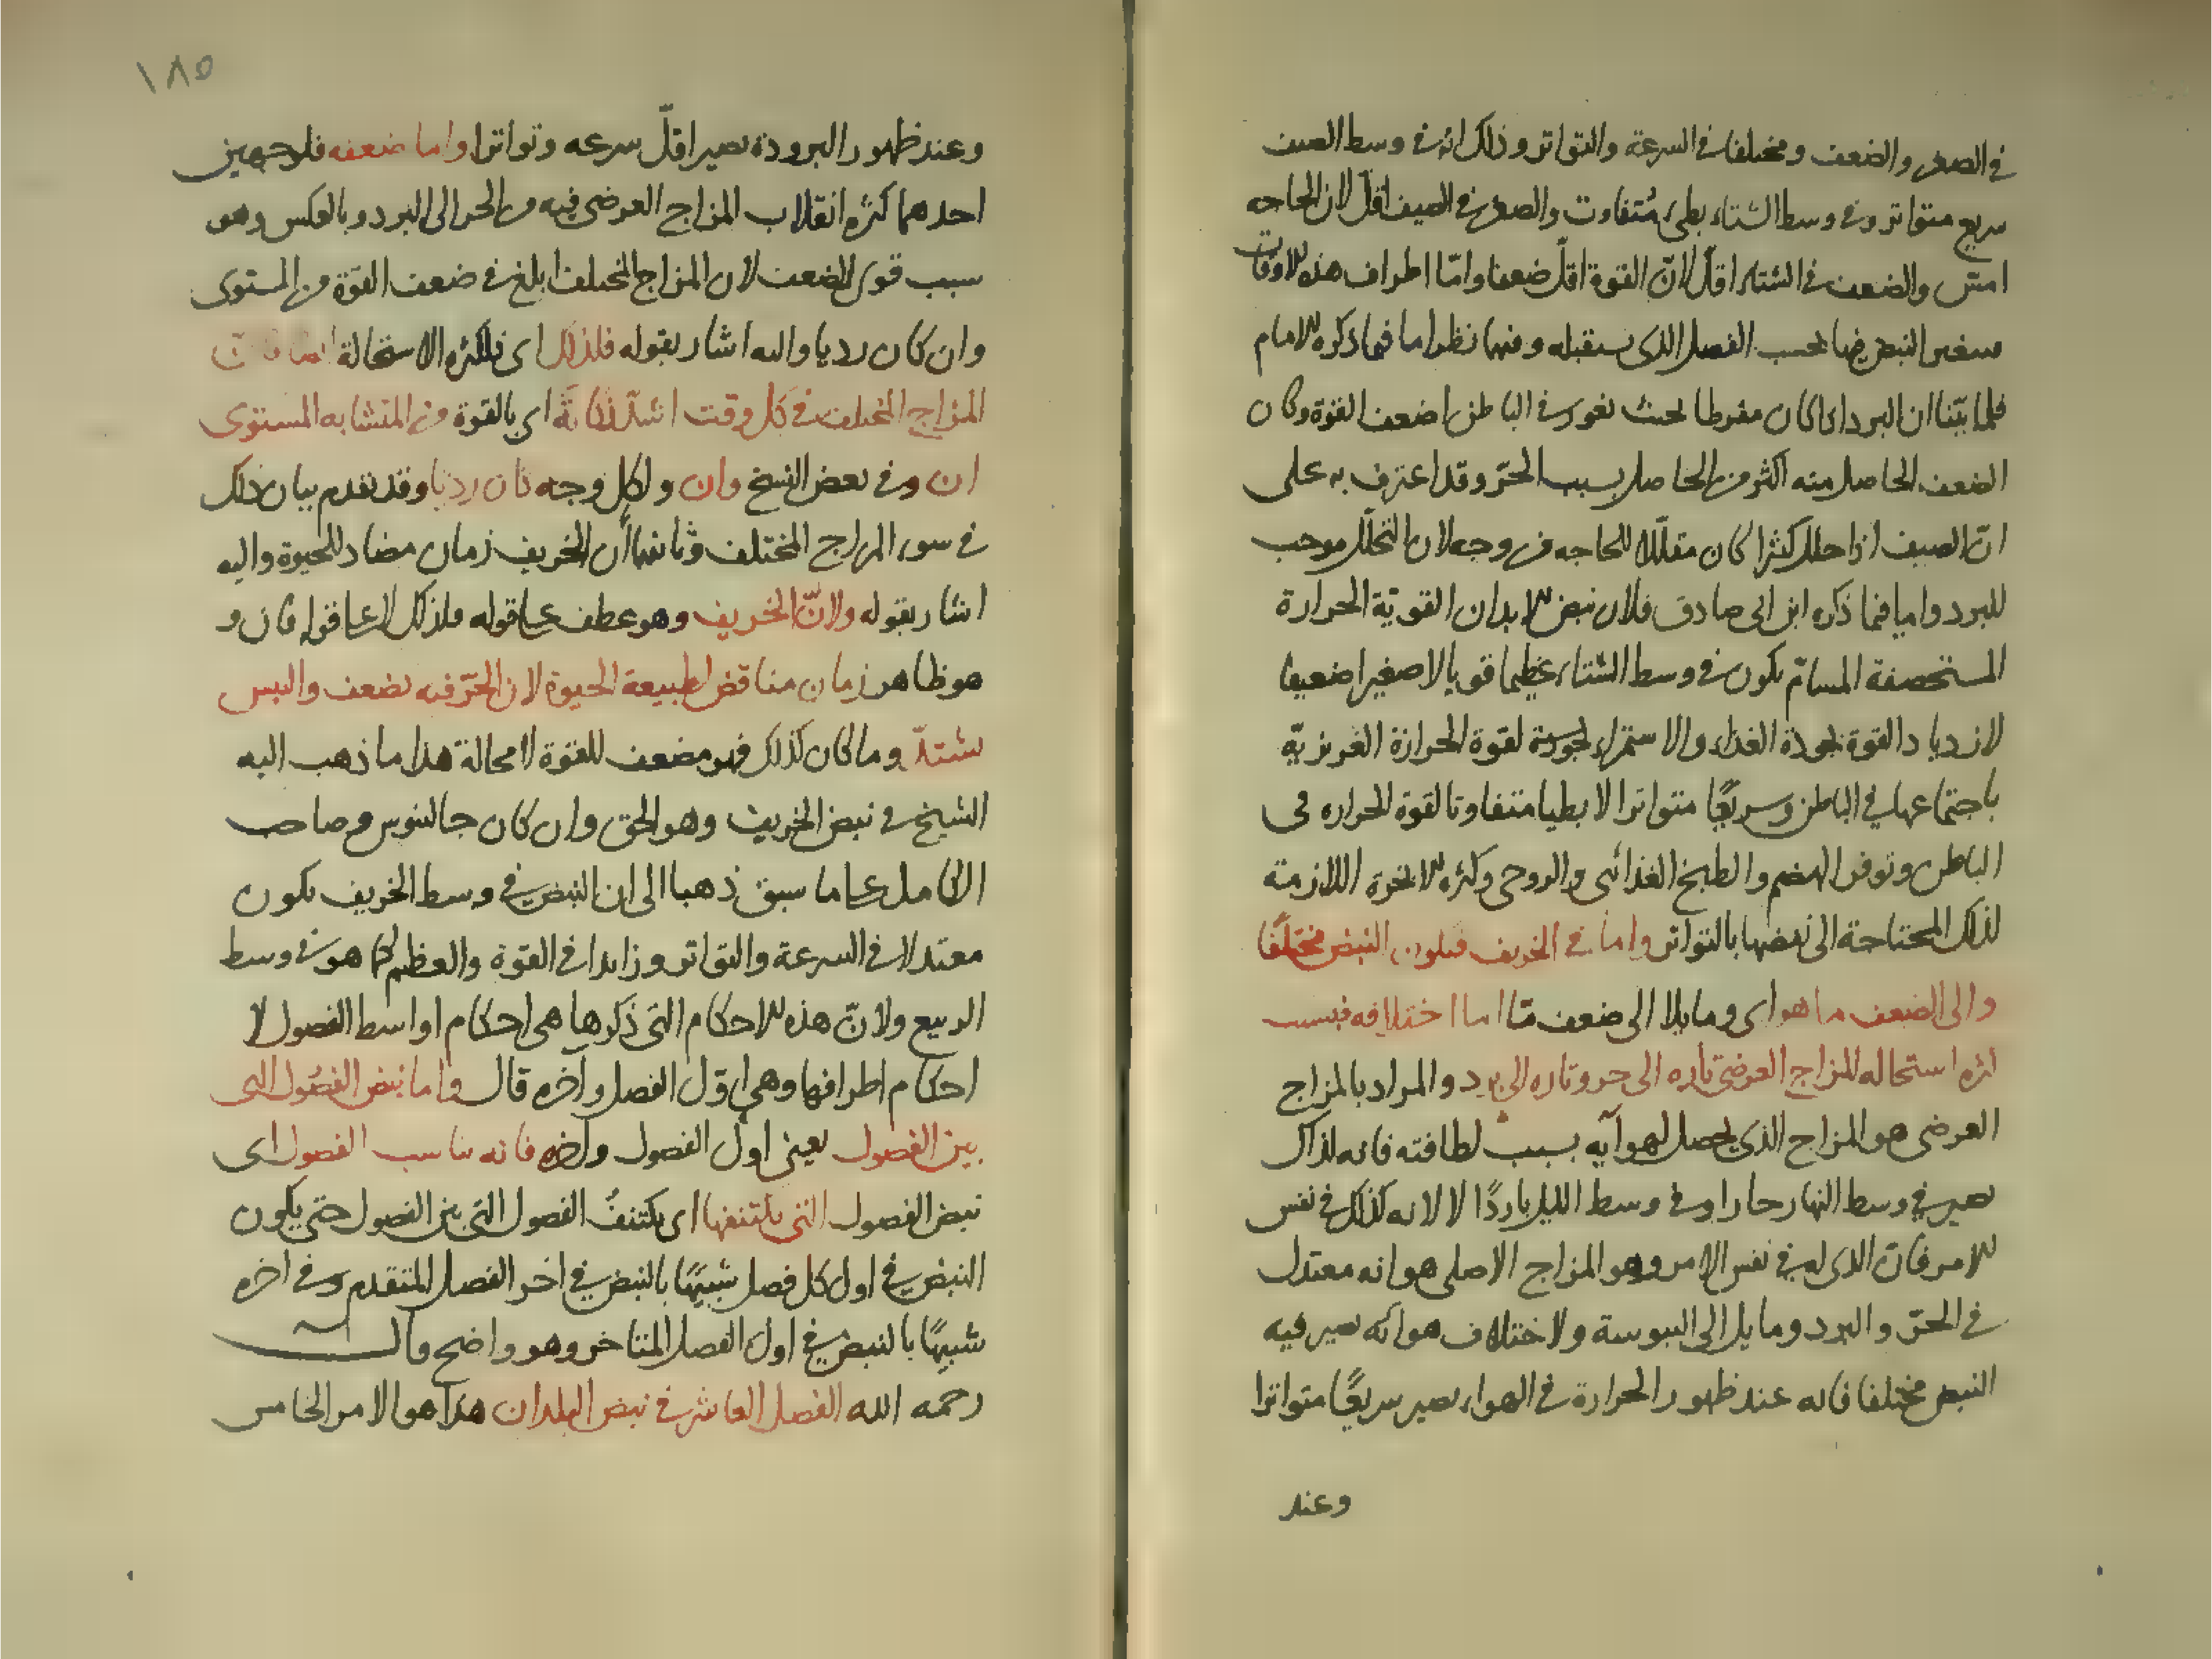 في الصغر والضعف ومختلفا في السرعة والتواتر وذلك انه في وسط الصيف
سريع متواتر وفي وسط الشتاء بطيء متفاوت والصغر في الصيف اقل لان الحاجه
امس والضعف في الشتاء اقل لان القوة اقل ضعفا واما اطراف هذه الاوقات
فيتغير النبض فيها بحسب الفصل الذي يستقبله ومنها نظر اما فيما ذكره الامام
فلما بينا ان البرد اذا كان مفرطا بحيث يغور في الباطن اضعف القوة وكان
الضعف الحاصل منه اكثر من الحاصل بسبب الحر وقد اعترف به على
ان الصيف اذا حلل كثيرا كان مقللا للحاجه من وجه لان التحلل موجب
للبرد واما فيما ذكره ابن ابي صادق فلان نبض الابدان القوية الحرارة
المستحصفة المسام يكون في وسط الشتاء عظيما قويا لا صغيرا ضعيفا
لازدياد القوة لجودة الغذاء والاستمراء لجودة لقوة الحرارة الغريزية
باجتماعها في الباطن وسريعا متواترا لا بطيا متفاوتا لقوة الحراره في
الباطن وتوفر الهضم والطبخ الغذائي والروحي وكثره الابخرة اللازمة
لذلك المحتاجة الى نفضها بالتواتر واما في الخريف فيكون النبض مختلفا
والى الضعف ما هو اي ومايلا الى ضعف ما اما اختلافه فبسبب
كثره استحاله المزاج العرضي تاره الى حر وتاره الى برد والمراد بالمزاج
العرضي هو المزاج الذي يحصل لهوآيه بسبب لطافته فانه لذلك
يصير في وسط النهار حارا وفي وسط الليل باردا لا لانه كذلك في نفس
الامر فان الذي له في نفس الامر وهو المزاج الاصلي هو انه معتدل
في الحر والبرد ومايل الى اليبوسة ولاختلاف هوآئه يصير فيه
النبض مختلفا فانه عند ظهور الحرارة في الهواء يصير سريعا متواترا
وعند
١٨٥
وعند ظهور البرودة يصير اقل سرعه وتواترا واما ضعفه فلوجهين
احدهما كثره انقلاب المزاج العرضي فيه من الحر الى البرد وبالعكس وهو
سبب قوي للضعف لان المزاج المختلف ابلغ في ضعف القوة من المستوى
وان كان رديا واليه اشار بقوله فلذلك اي فلكثره الاستحالة ايضا فان
المزاج المختلف في كل وقت اشد نكاية اي بالقوة من المتشابه المستوى
ان وفي بعض النسخ وان ولكل وجه كان رديا وقد تقدم بيان ذلك
في سوء المزاج المختلف وثانيهما أن الخريف زمان مضاد للحيوة واليه
اشار بقوله ولان الخريف وهو عطف على قوله فلذلك لا على قوله فان و
هو ظاهر زمان مناقض لطبيعة الحيوة لان الحر فيه يضعف واليبس
يشتد وما كان كذلك فهو مضعف للقوة لا محالة هذا ما ذهب اليه
الشيخ في نبض الخريف وهو الحق وان كان جالينوس وصاحب
الكامل على ما سبق ذهبا الى ان النبض في وسط الخريف يكون
معتدلا في السرعة والتواتر وزايدا في القوة والعظم كما هو في وسط
الربيع ولان هذه الاحكام التي ذكرها هي احكام اواسط الفصول لا
احكام اطرافها وهي اول الفصل وآخره قال واما نبض الفصول التي
بين الفصول يعني اول الفصول وآخره فانه يناسب الفصول اي
نبض الفصول التي يكتنفها اي يكتنف الفصول التي بين الفصول حتى يكون
النبض في اول كل فصل شبيها بالنبض في اخر الفصل المتقدم وفي اخره
شبيها بالنبض في اول الفصل المتاخر وهو واضح قال
رحمه الله الفصل العاشر في نبض البلدان هذا هو الامر الخامس